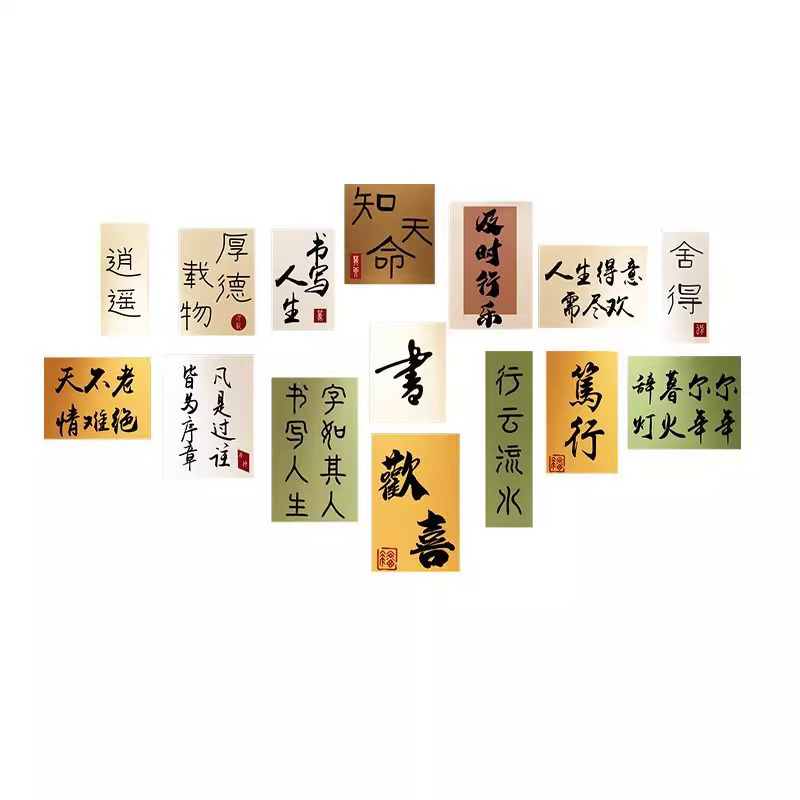 逍遥
厚德
载物
书写
人生
知
天
命
及时行乐
人生得意
需尽欢
舍得
天不老
情难绝
凡是过往
皆为序章
字如其人
书写人生
書
歡
喜
行云流水
篤行
辞暮尔尔
灯火年年